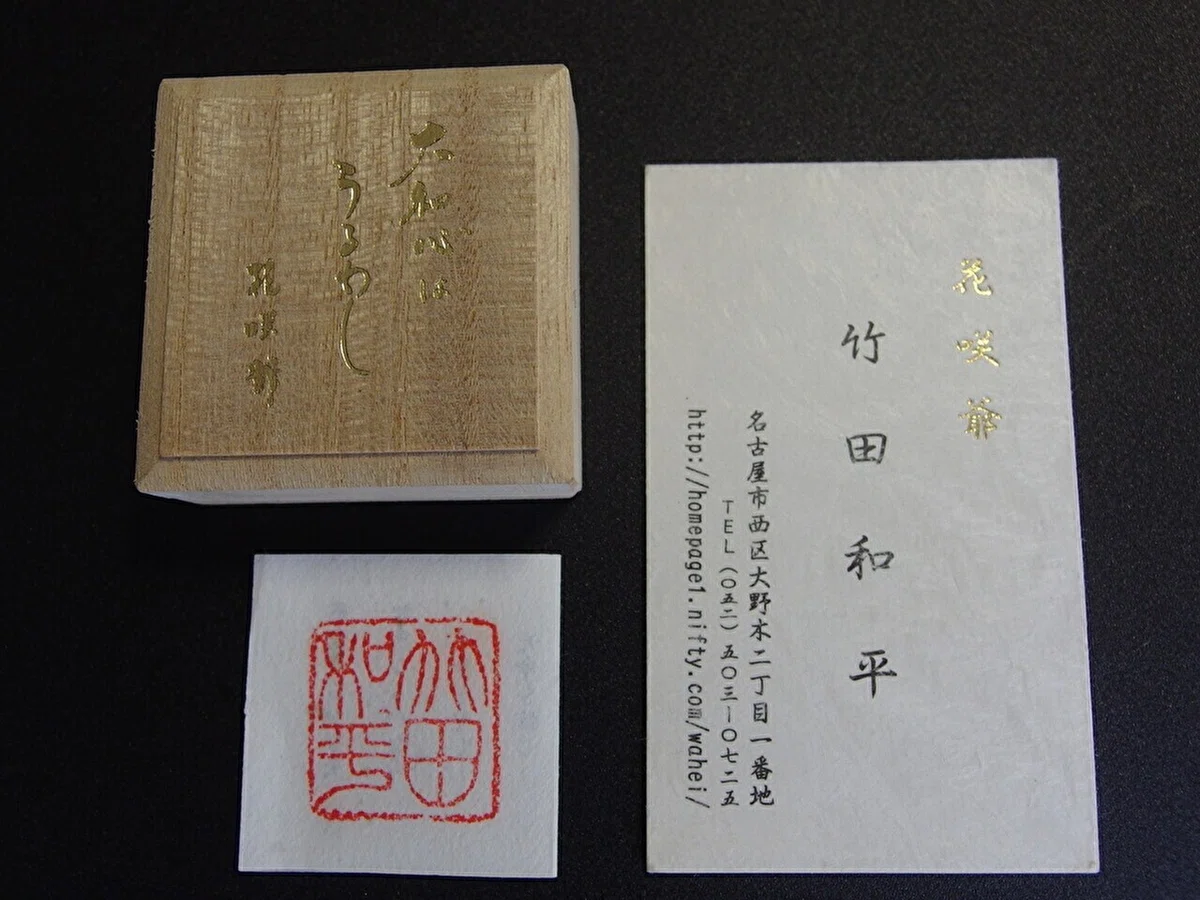 大和心は
うるわし
花咲爺
花咲爺
竹田和平
名古屋市西区大野木二丁目一番地
TEL(〇五二)五〇三ー〇七二五
http://homepage1.nifty.com/wahei/
竹田
和平